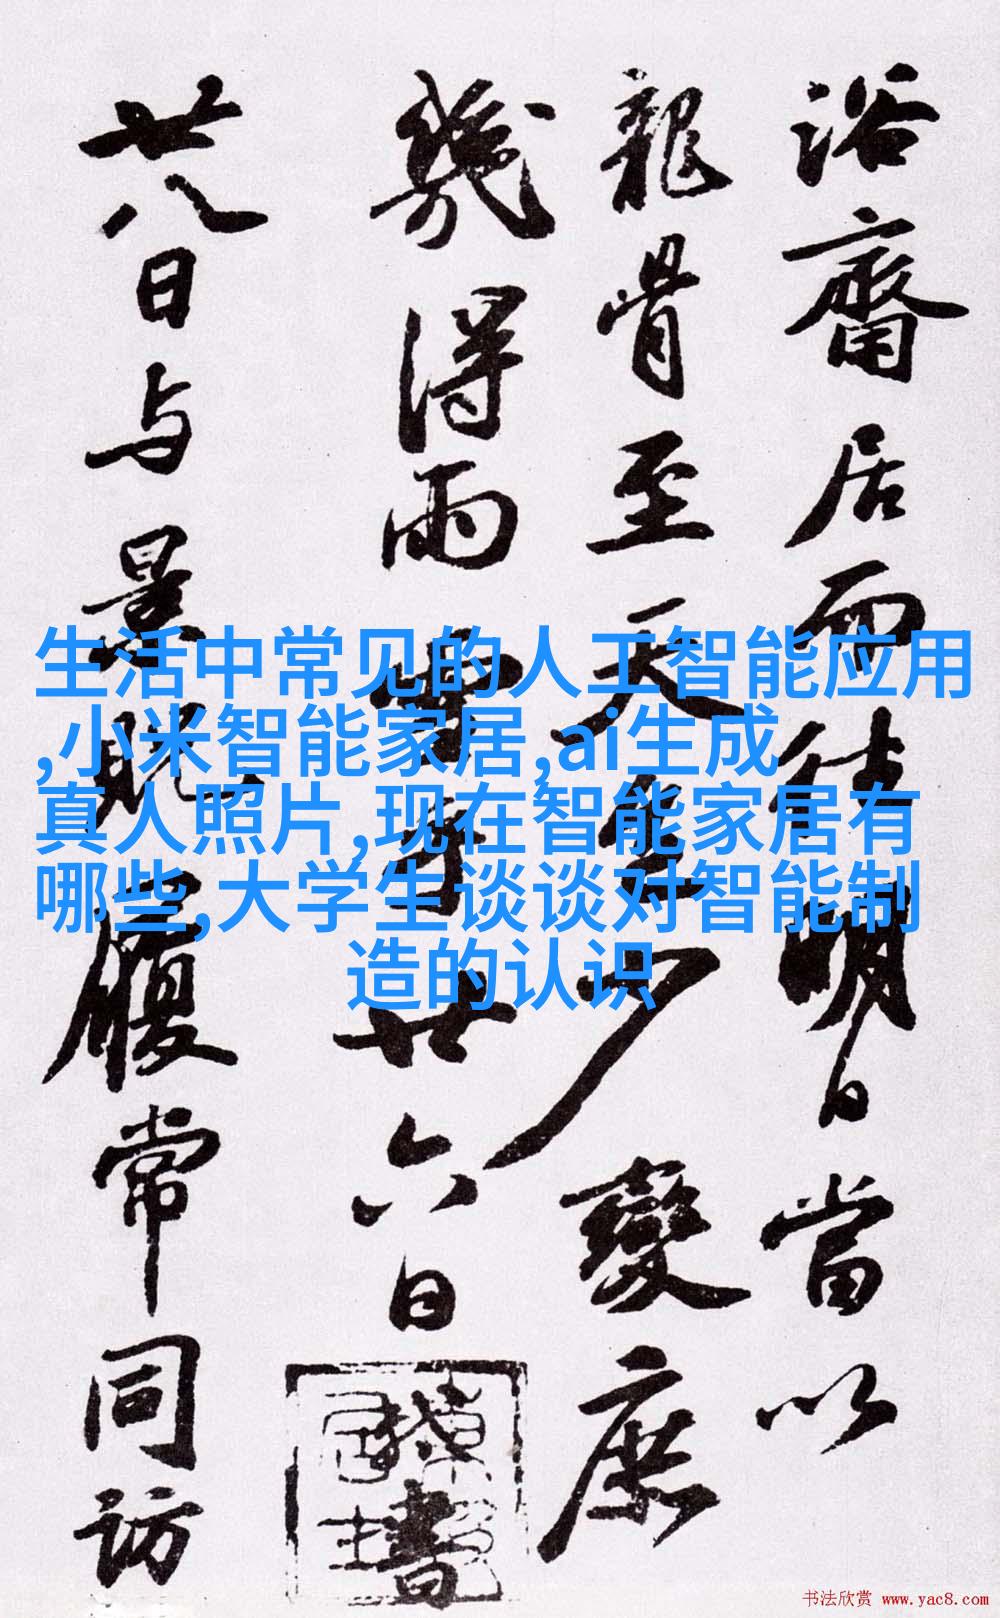 浴齋居而往明日當以
龍骨至天色少變庶
幾得雨雪乎廿六日書
廿八日与景貺履常同訪
生活中常见的人工智能应用
,小米智能家居,ai生成
真人照片,现在智能家居有
哪些,大学生谈谈对智能制
造的认识
书法欣赏 www.yac8.com